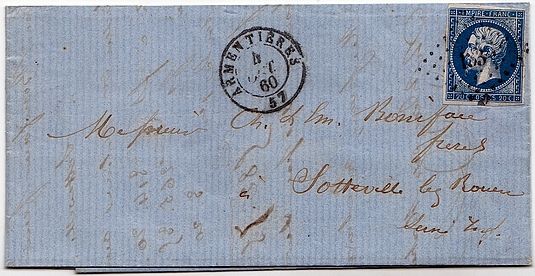 EMPIRE FRANC
20 C POSTES 20 C
ARMENTIÈRES
4
OCT
60
57
Messieurs Ch. & Em. Boniface
frères
à Sotteville lez Rouen
Seine Infre